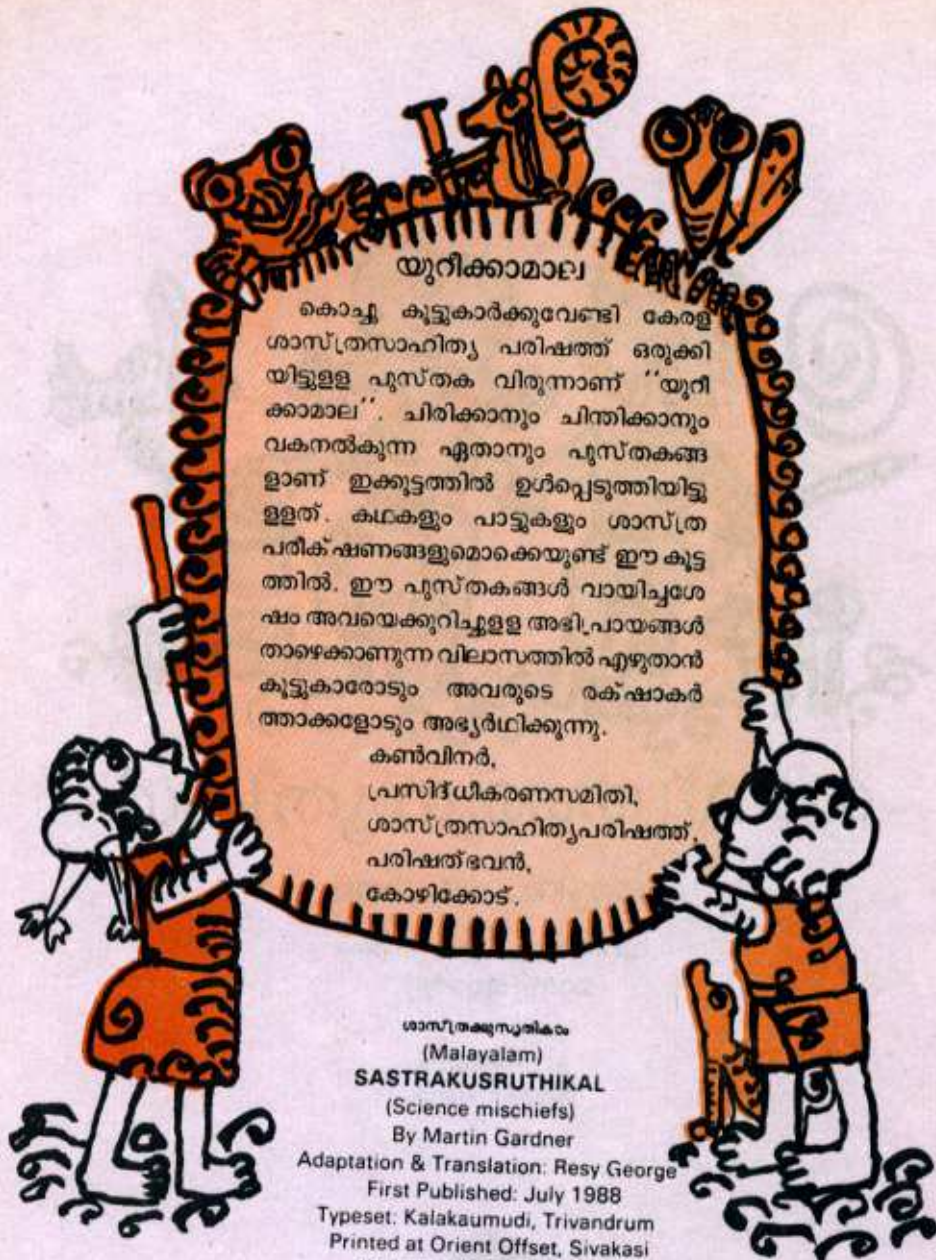 യുറീക്കാമാല
കൊച്ചു കൂട്ടുകാർക്കുവേണ്ടി കേരള
ശാസ്ത്രസാഹിത്യ പരിഷത്ത് ഒരുക്കി
യിട്ടുളള പുസ്തക വിരുന്നാണ് "യുറീ
ക്കാമാല". ചിരിക്കാനും ചിന്തിക്കാനും
വകനൽകുന്ന ഏതാനും പുസ്തകങ്ങ
ളാണ് ഇക്കൂട്ടത്തിൽ ഉൾപ്പെടുത്തിയിട്ടു
ളളത്. കഥകളും പാട്ടുകളും ശാസ്ത്ര
പരീക്ഷണങ്ങളുമൊക്കെയുണ്ട് ഈ കൂട്ട
ത്തിൽ. ഈ പുസ്തകങ്ങൾ വായിച്ചശേ
ഷം അവയെക്കുറിച്ചുളള അഭിപ്രായങ്ങൾ
താഴെക്കാണുന്ന വിലാസത്തിൽ എഴുതാൻ
കൂട്ടുകാരോടും അവരുടെ രക്ഷാകർ
ത്താക്കളോടും അഭ്യർഥിക്കുന്നു.
കൺവിനർ,
പ്രസിദ്ധീകരണസമിതി,
ശാസ്ത്രസാഹിത്യപരിഷത്ത്,
പരിഷത്ഭവൻ,
കോഴിക്കോട്.
ശാസ്ത്രക്കുസൃതികൾ
(Malayalam)
SASTRAKUSRUTHIKAL
(Science mischiefs)
By Martin Gardner
Adaptation & Translation: Resy George
First Published: July 1988
Typeset: Kalakaumudi, Trivandrum
Printed at Orient Offset, Sivakasi